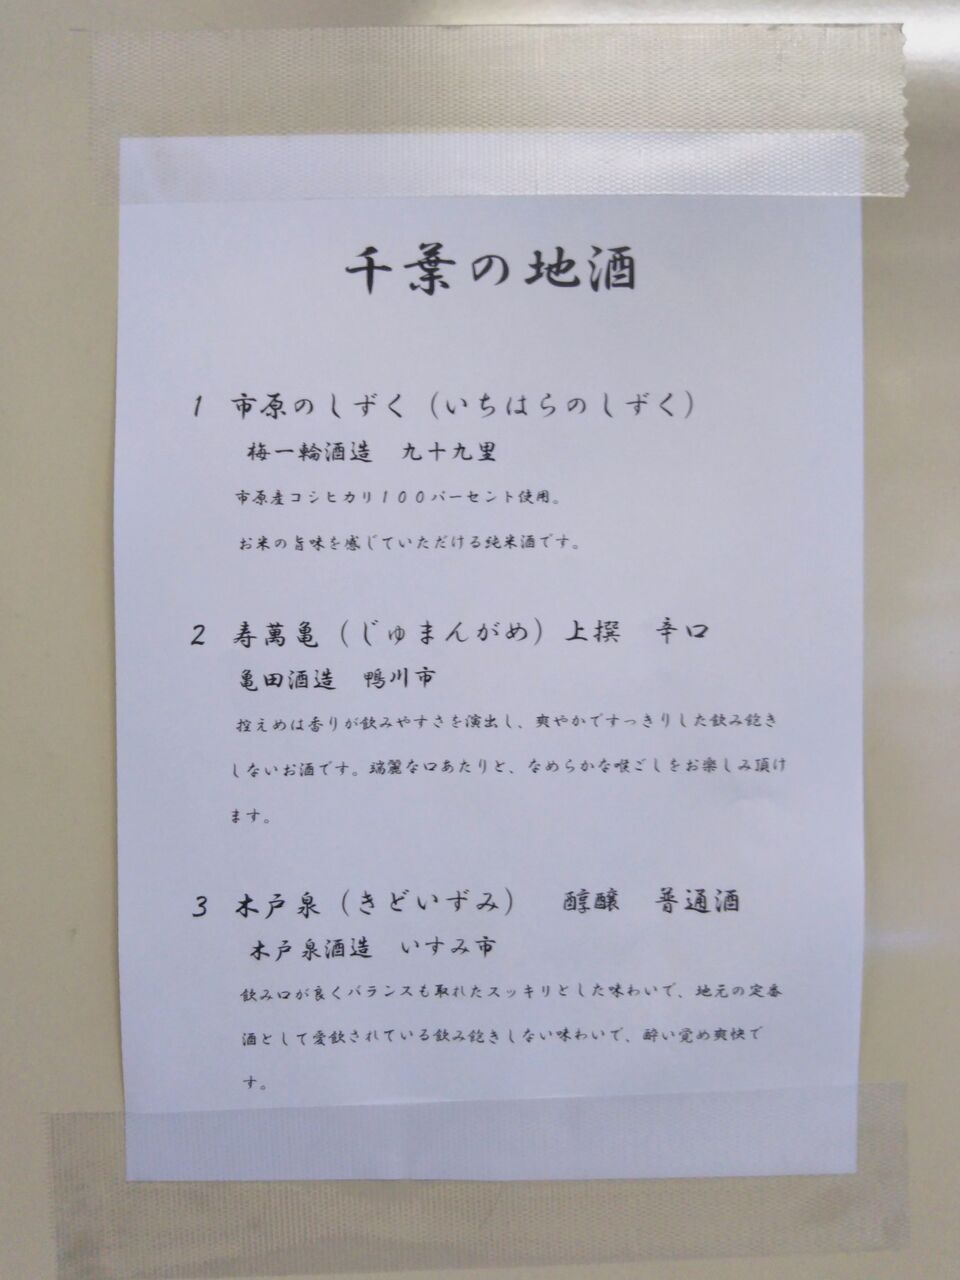 千葉の地酒
1 市原のしずく（いちはらのしずく）
梅一輪酒造　九十九里
市原産コシヒカリ１００パーセント使用。
お米の旨味を感じていただける純米酒です。
2 寿萬亀（じゅまんがめ）上撰　辛口
亀田酒造　鴨川市
控えめは香りが飲みやすさを演出し、爽やかですっきりした飲み飽き
しないお酒です。瑞麗な口あたりと、なめらかな喉ごしをお楽しみ頂け
ます。
3 木戸泉（きどいずみ）　醇醸　普通酒
木戸泉酒造　いすみ市
飲み口が良くバランスも取れたスッキリとした味わいで、地元の定番
酒として愛飲されている飲み飽きしない味わいで、酔い覚め爽快で
す。